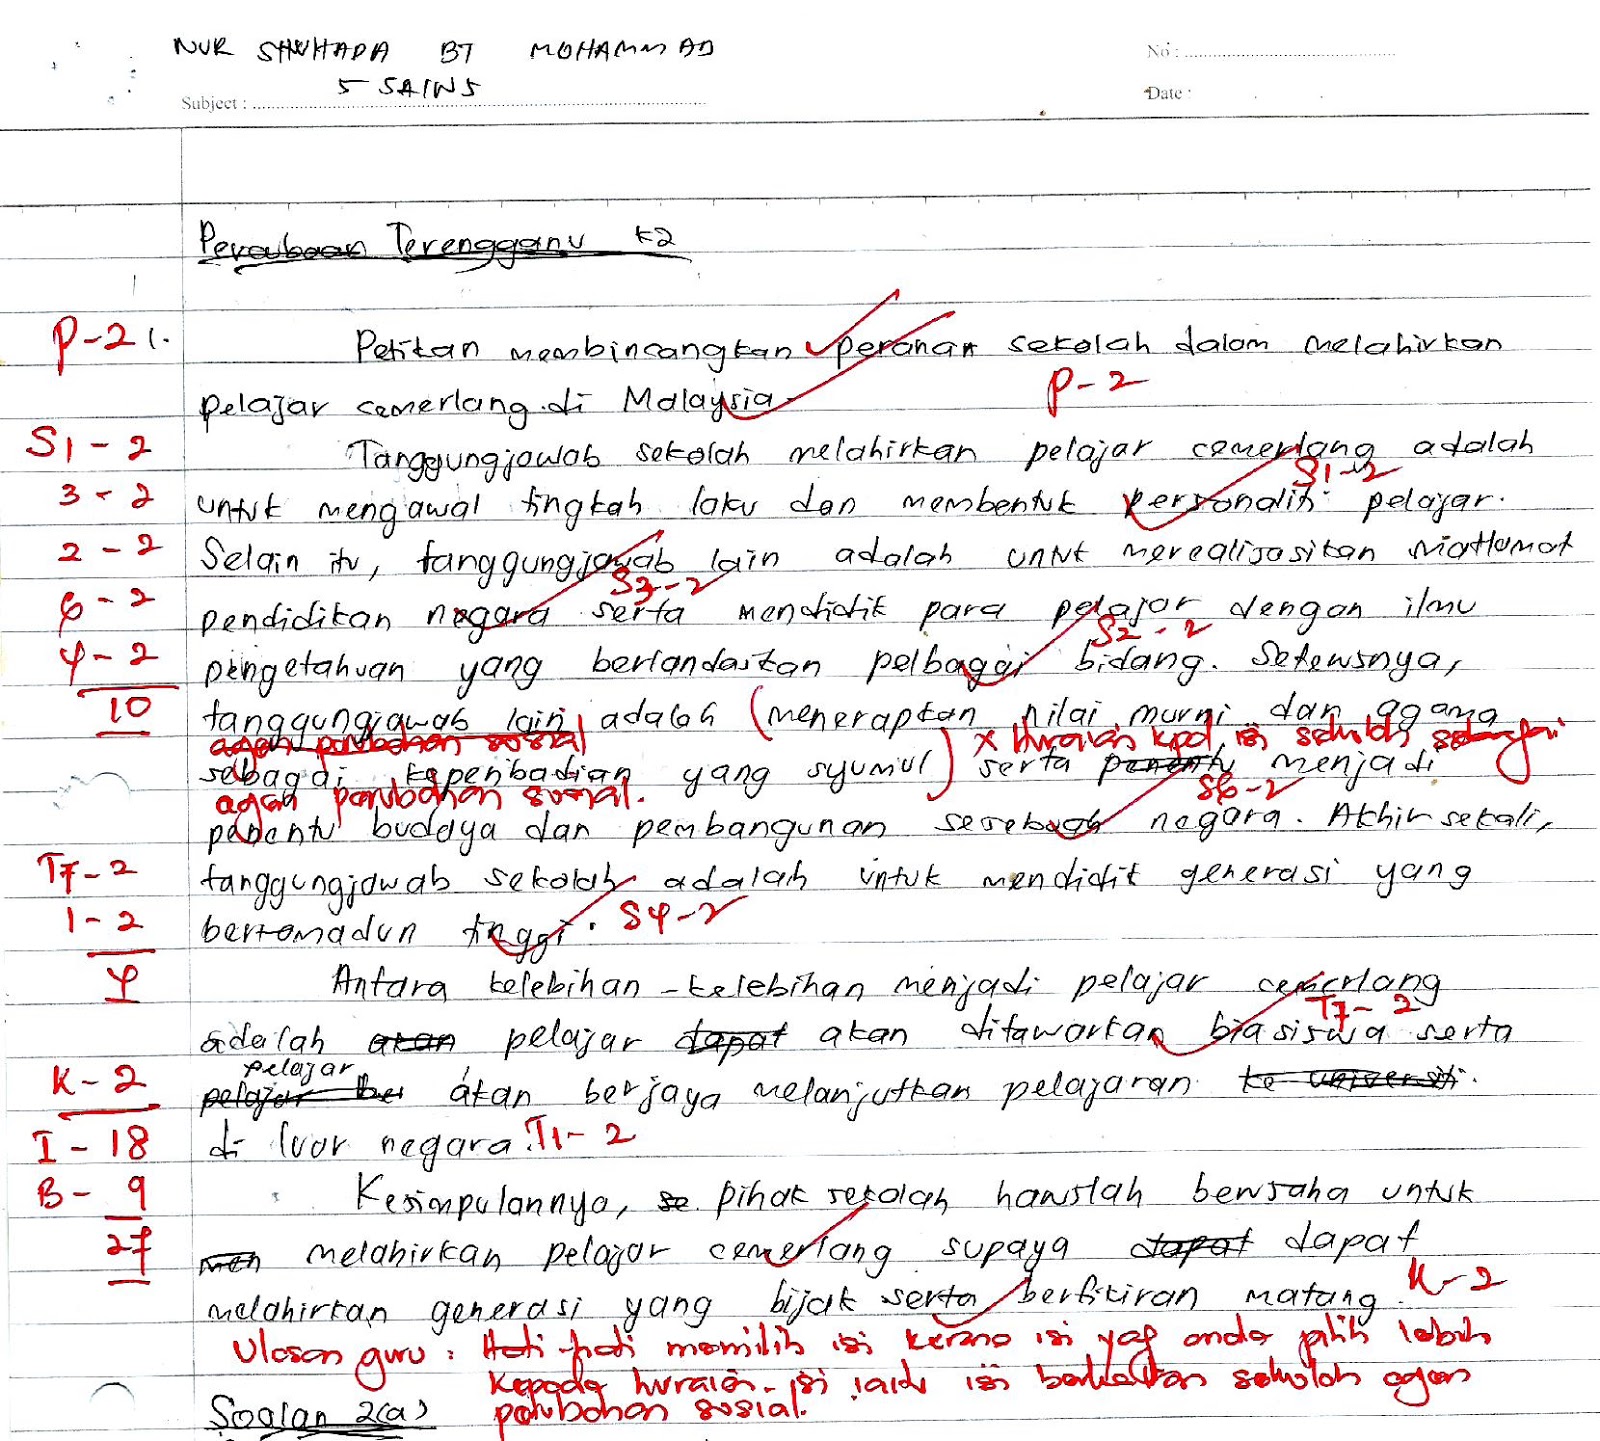 NUR SHUHADA BT MOHAMMAD
No :
5 SAINS
Subject :
Date :
Percubaan Terengganu K2
P-2 1. Petikan membincangkan peranan sekolah dalam melahirkan
pelajar cemerlang di Malaysia. P-2
S1 - 2 Tanggungjawab sekolah melahirkan pelajar cemerlang adalah
S1-2
3 - 2 untuk mengawal tingkah laku dan membentuk personaliti pelajar.
2 - 2 Selain itu, tanggungjawab lain adalah untuk merealisasikan matlamat
S3-2
6 - 2 pendidikan negara serta mendidik para pelajar dengan ilmu
S2-2
4 - 2 pengetahuan yang berlandaskan pelbagai bidang. Seterusnya,
10 tanggungjawab lain adalah (menerapkan nilai murni dan agama
agen perubahan sosial x huraian kpd isi sekolah sebagai
sebagai kepribadian yang syumul) serta penentu menjadi
agen perubahan sosial. S6-2
penentu budaya dan pembangunan sesebuah negara. Akhir sekali,
T7-2 tanggungjawab sekolah adalah untuk mendidik generasi yang
1-2 bertamadun tinggi. S4-2
4 Antara kelebihan-kelebihan menjadi pelajar cemerlang
T7-2
adalah akan pelajar dapat akan ditawarkan biasiswa serta
pelajar
K-2 pelajar ber akan berjaya melanjutkan pelajaran ke universiti.
I - 18 di luar negara. T1-2
B - 9 Kesimpulannya, se pihak sekolah haruslah berusaha untuk
27 men melahirkan pelajar cemerlang supaya dapat dapat
melahirkan generasi yang bijak serta berfikiran matang. K-2
Ulasan guru : Hati-hati memilih isi kerana isi yag anda pilih lebih
kepada huraian isi iaitu isi berkaitan sekolah agen
Soalan 2(a) perubahan sosial.